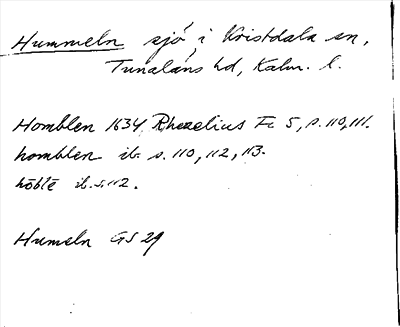 Hummeln sjö i Kristdala sn,
Tunaläns hd, Kalm. l.
Homblen 1634 Rhezelius Fc 5, s. 110, 111.
homblen ib. s. 110, 112, 113.
ib. s. 112.
Humeln GS 29